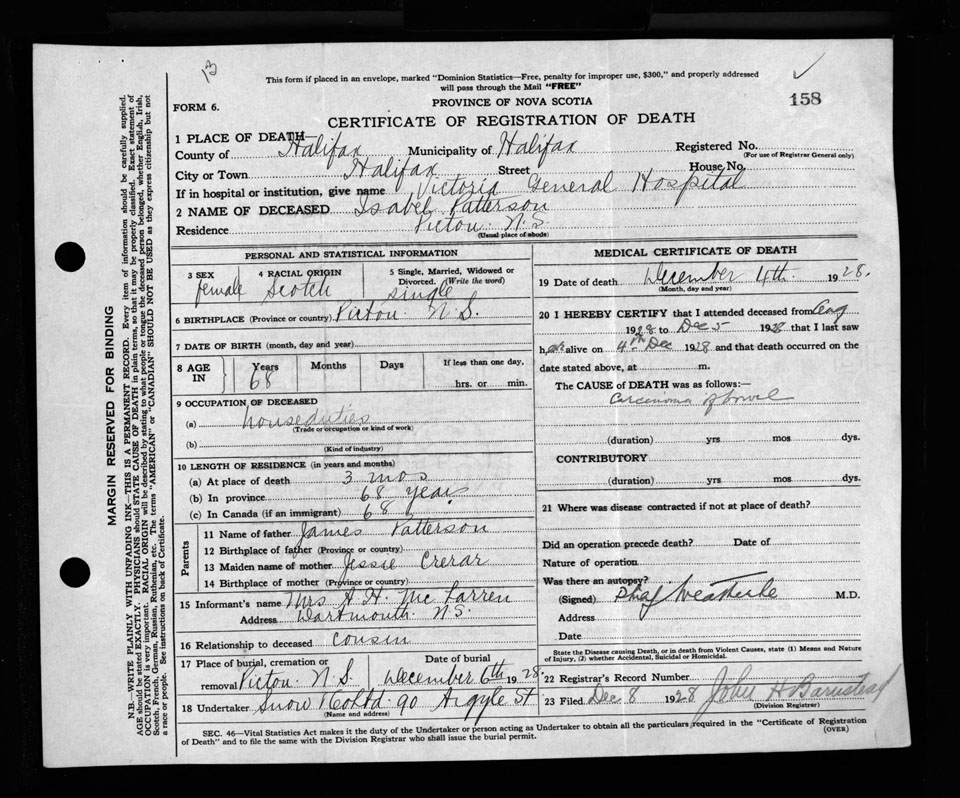 13
This form if placed in an envelope, marked "Dominion Statistics—Free, penalty for improper use, $300," and properly addressed
will pass through the Mail "FREE"
158
FORM 6.
PROVINCE OF NOVA SCOTIA
CERTIFICATE OF REGISTRATION OF DEATH
1 PLACE OF DEATH—
County of Halifax Municipality of Halifax Registered No.
(For use of Registrar General only)
City or Town Halifax Street House No.
If in hospital or institution, give name Victoria General Hospital
2 NAME OF DECEASED Isabel Patterson
Residence Pictou N.S.
(Usual place of abode)
PERSONAL AND STATISTICAL INFORMATION
3 SEX
female
4 RACIAL ORIGIN
Scotch
5 Single, Married, Widowed or
Divorced. (Write the word)
single
6 BIRTHPLACE (Province or country) Pictou N.S.
7 DATE OF BIRTH (month, day and year)
8 AGE
IN
Years
68
Months
Days
If less than one day,
hrs. or min.
9 OCCUPATION OF DECEASED
(a) houseduties
(Trade or occupation or kind of work)
(b)
(Kind of industry)
10 LENGTH OF RESIDENCE (in years and months)
(a) At place of death 3 mos
(b) In province 68 years
(c) In Canada (if an immigrant) 68
Parents
11 Name of father James Patterson
12 Birthplace of father (Province or country)
13 Maiden name of mother Jessie Crerar
14 Birthplace of mother (Province or country)
15 Informant's name Mrs A. H. McLarren
Address Dartmouth N.S.
16 Relationship to deceased cousin
17 Place of burial, cremation or
removal Pictou N.S.
Date of burial
December 6th 1928.
18 Undertaker Snow & Co Ltd 90 Argyle St
(Name and address)
MEDICAL CERTIFICATE OF DEATH
19 Date of death December 4th. 1928.
(Month, day and year)
20 I HEREBY CERTIFY that I attended deceased from Aug
1928 to Dec 5 1928 that I last saw
her alive on 4th Dec 1928 and that death occurred on the
date stated above, at m.
The CAUSE of DEATH was as follows:—
Carcinoma of bowel
(duration) yrs mos dys.
CONTRIBUTORY
(duration) yrs. mos. dys.
21 Where was disease contracted if not at place of death?
Did an operation precede death? Date of
Nature of operation
Was there an autopsy?
(Signed) M.D.
Address
Date
State the Disease causing Death, or in death from Violent Causes, state (1) Means and Nature
of Injury, (2) whether Accidental, Suicidal or Homicidal.
22 Registrar's Record Number
23 Filed Dec 8 1928 John H Barnstead
(Division Registrar)
SEC. 46—Vital Statistics Act makes it the duty of the Undertaker or person acting as Undertaker to obtain all the particulars required in the "Certificate of Registration
of Death" and to file the same with the Division Registrar who shall issue the burial permit.
(OVER)
MARGIN RESERVED FOR BINDING
N.B. WRITE PLAINLY WITH UNFADING INK—THIS IS A PERMANENT RECORD. Every item of information should be carefully supplied.
AGE should be stated EXACTLY. PHYSICIANS should STATE CAUSE OF DEATH in plain terms, so that it may be properly classified. Exact statement of
OCCUPATION is very important. RACIAL ORIGIN will be described by stating to what people or tongue the deceased person belonged, whether English, Irish,
Scotch, French, German, Russian, Ruthenian, etc. The terms "AMERICAN" or "CANADIAN" SHOULD NOT BE USED as they express citizenship but not
a race or people. See instructions on back of Certificate.